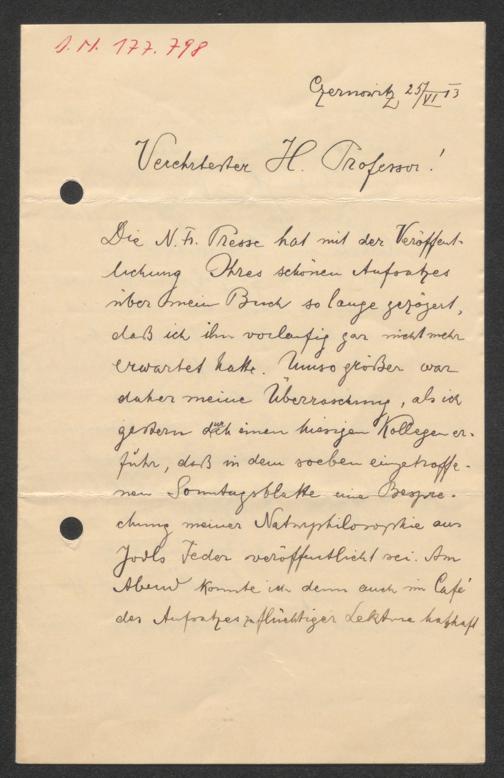 J. N. 177.798
Czernowitz 25/VI 13
Verehrtester H. Professor!
Die N. Fr. Presse hat mit der Veröffent-
lichung Ihres schönen Aufsatzes
über mein Buch so lange gezögert,
daß ich ihn vorläufig gar nicht mehr
erwartet hatte. Umso größer war
daher meine Überraschung, als ich
gestern durch einen hiesigen Kollegen er-
fuhr, daß in dem soeben eingetroffe-
nen Sonntagsblatte eine Bespre-
chung meiner Naturphilosophie aus
Jodls Feder veröffentlicht sei. Am
Abend konnte ich denn auch im Café
des Aufsatzes zu flüchtiger Lektüre habhaft